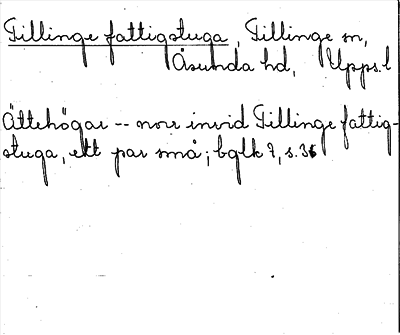 Tillinge fattigstuga, Tillinge sn,
Åsunda hd, Upps. l
Ättehögar -- norr invid Tillinge fattig-
stuga, ett par små; bqlk 7, s. 36